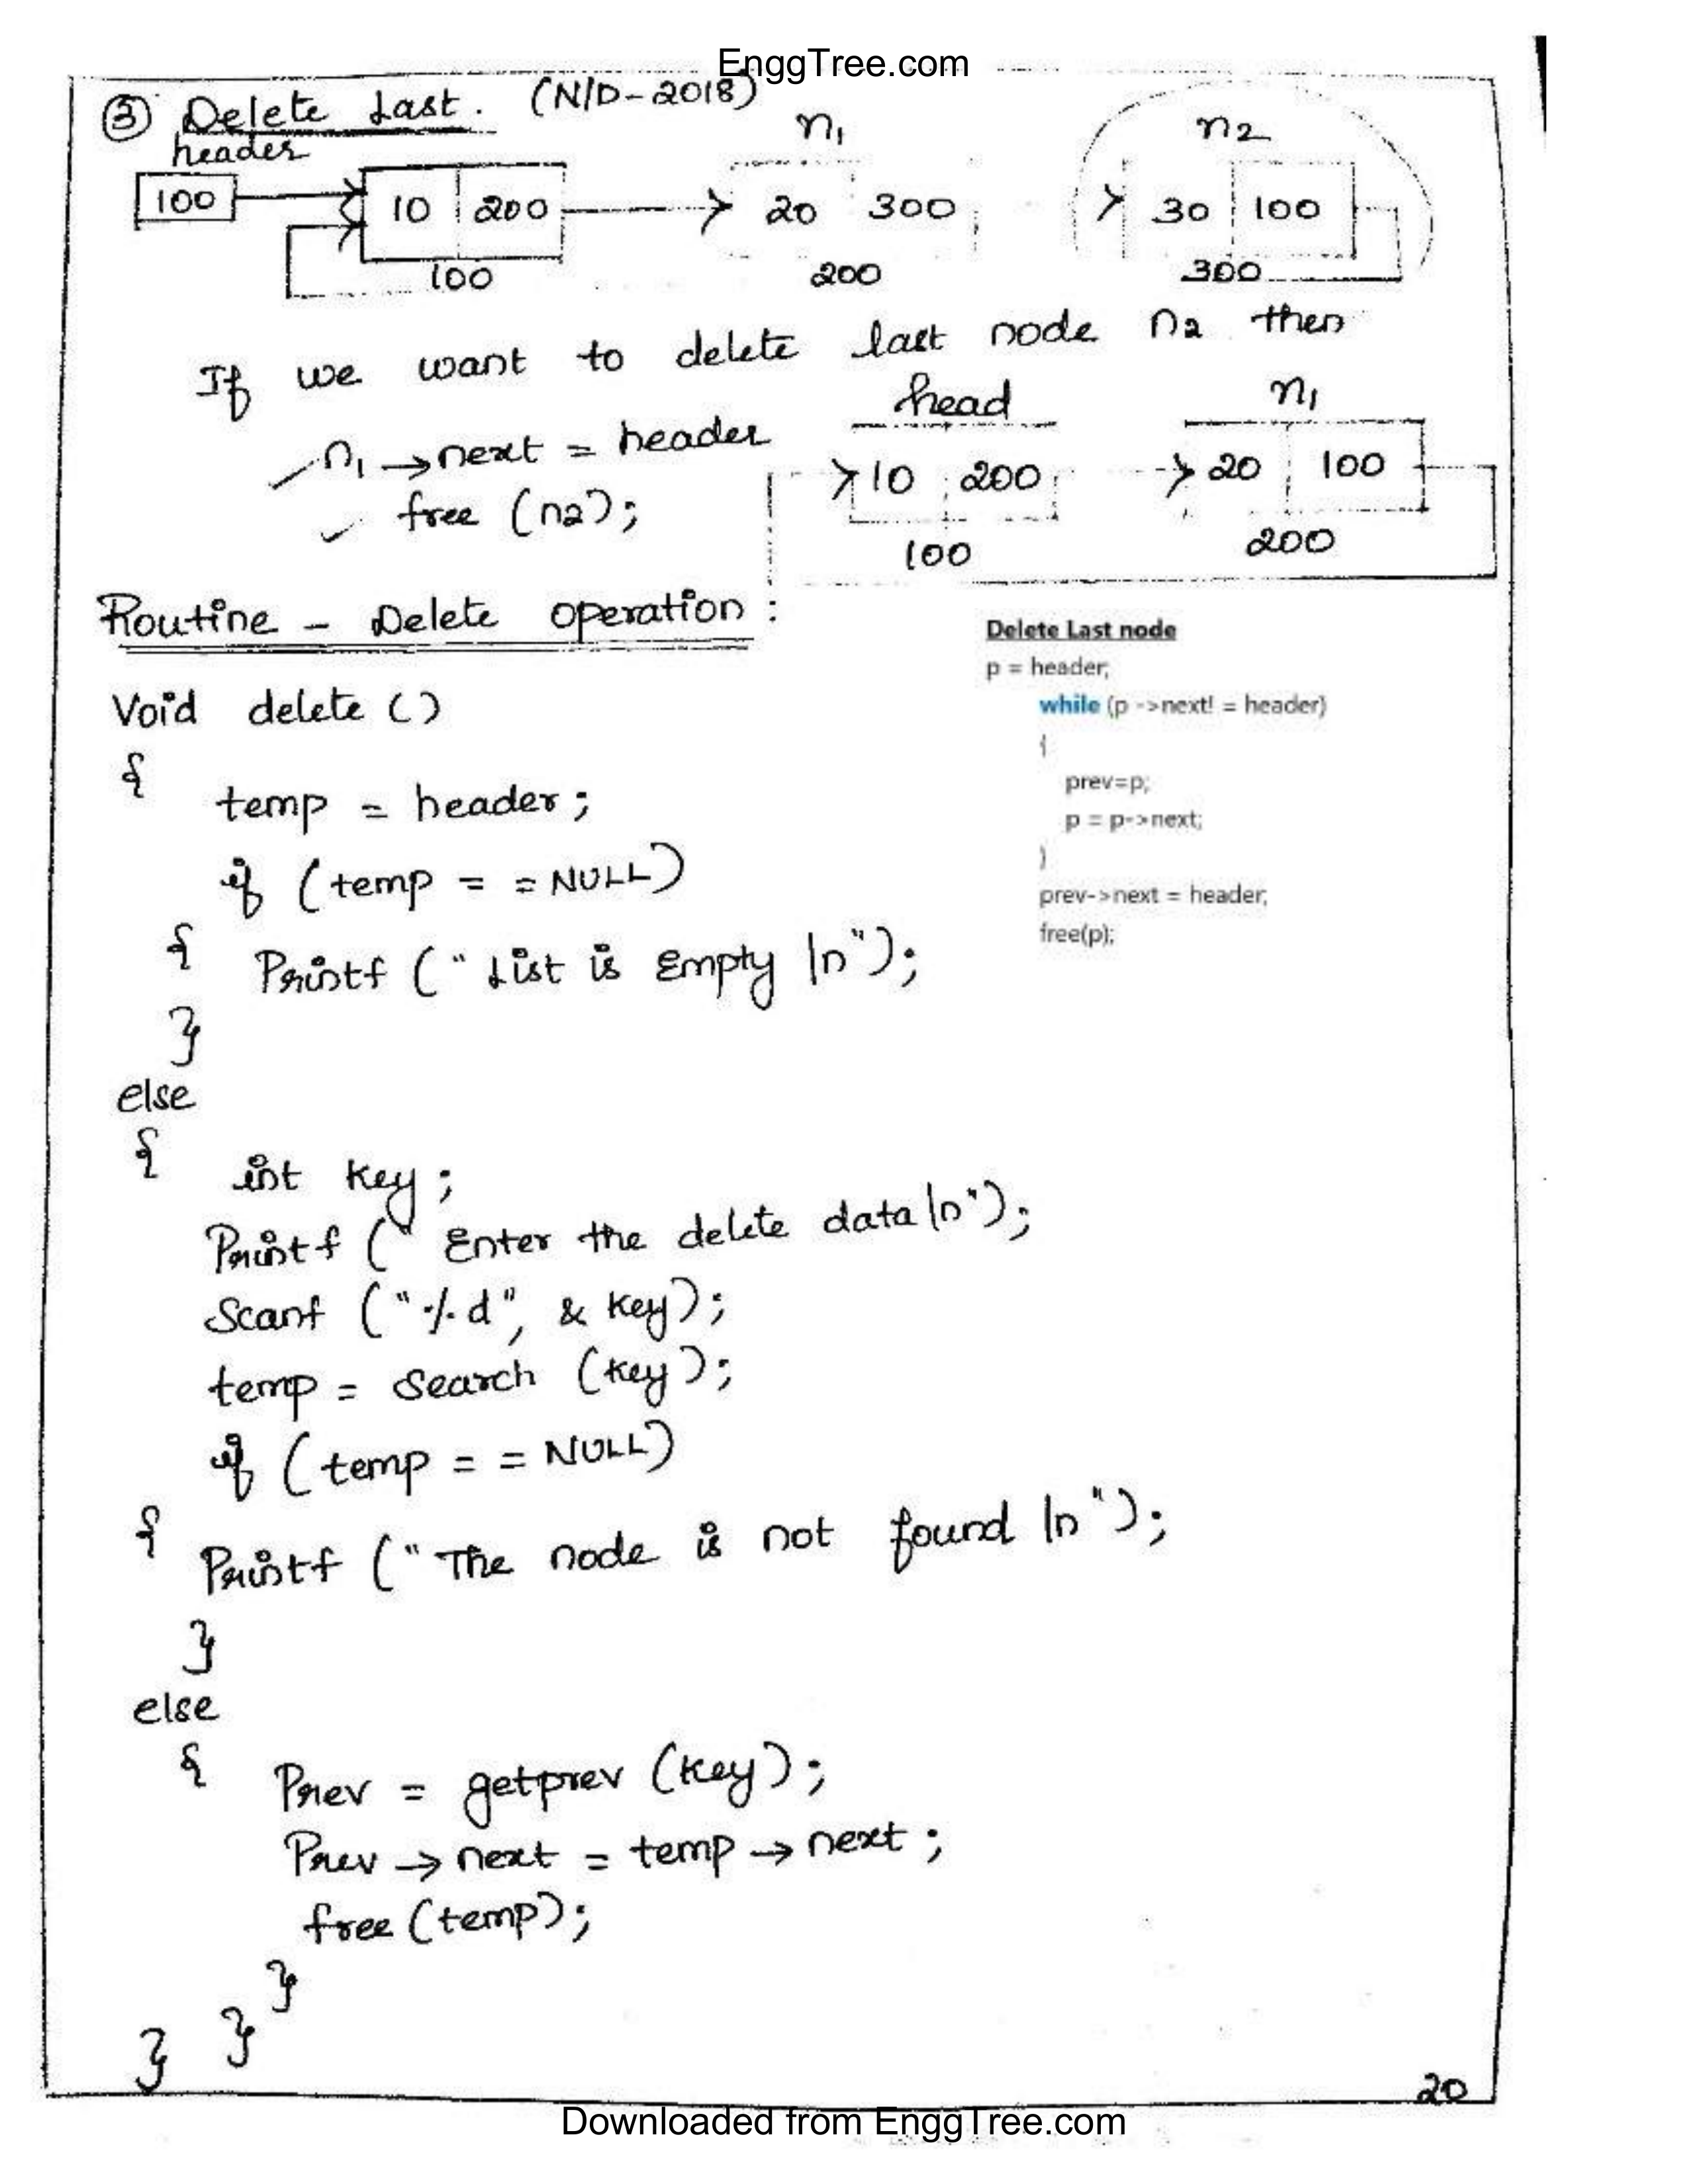 EnggTree.com
③ Delete Last. (N/D-2018)
header n1 n2
100 10 200 20 300 30 100
100 200 300
If we want to delete last node n2 then
n1 → next = header
free (n2);
head n1
10 200 20 100
100 200
Routine - Delete operation :
Delete Last node
p = header;
while (p ->next! = header)
{
prev=p;
p = p->next;
}
prev->next = header;
free(p);
Void delete ()
{
temp = header;
if (temp = = NULL)
{ Printf (" List is Empty \n");
}
else
{
int key;
Printf (" Enter the delete data \n");
Scanf ("%d", & key);
temp = Search (key);
if (temp = = NULL)
{
Printf (" The node is not found \n");
}
else
{ Prev = getprev (key);
Prev → next = temp → next;
free (temp);
}
} }
20
Downloaded from EnggTree.com